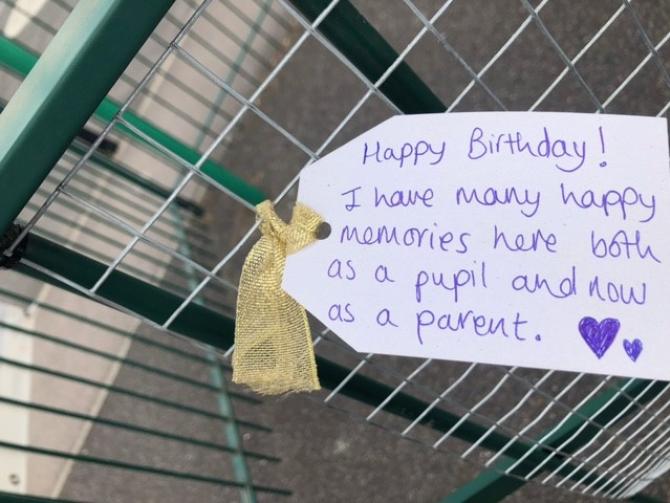 Happy Birthday!
I have many happy
memories here both
as a pupil and now
as a parent.